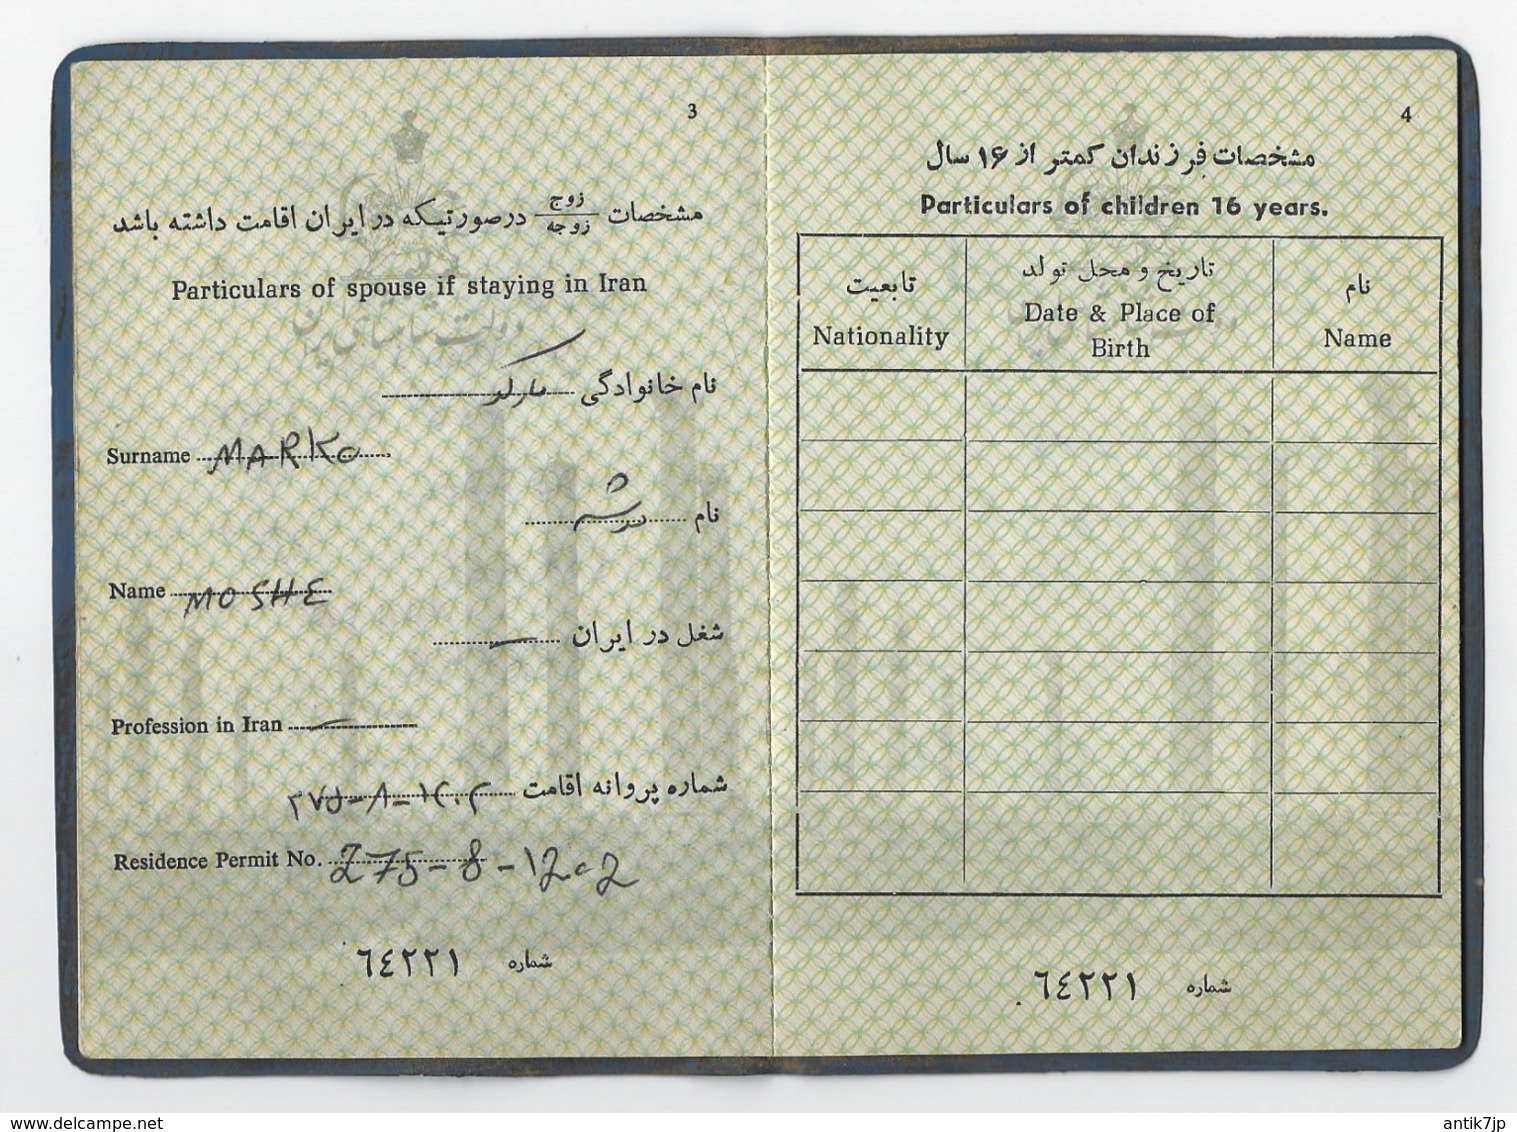 3
مشخصات زوج / زوجه در صورتیکه در ایران اقامت داشته باشد
Particulars of spouse if staying in Iran
نام خانوادگی مارکو
Surname MARKO
نام
Name MOSHE
شغل در ایران —
Profession in Iran —
شماره پروانه اقامت ۲۷۵-۸-۱۲۰۲
Residence Permit No. 275-8-1202
شماره ٦٤٢٢١
4
مشخصات فرزندان کمتر از ۱۶ سال
Particulars of children 16 years.
نام
Name
تاریخ و محل تولد
Date & Place of
Birth
تابعیت
Nationality
شماره ٦٤٢٢١
delcampe.net
antik7jp